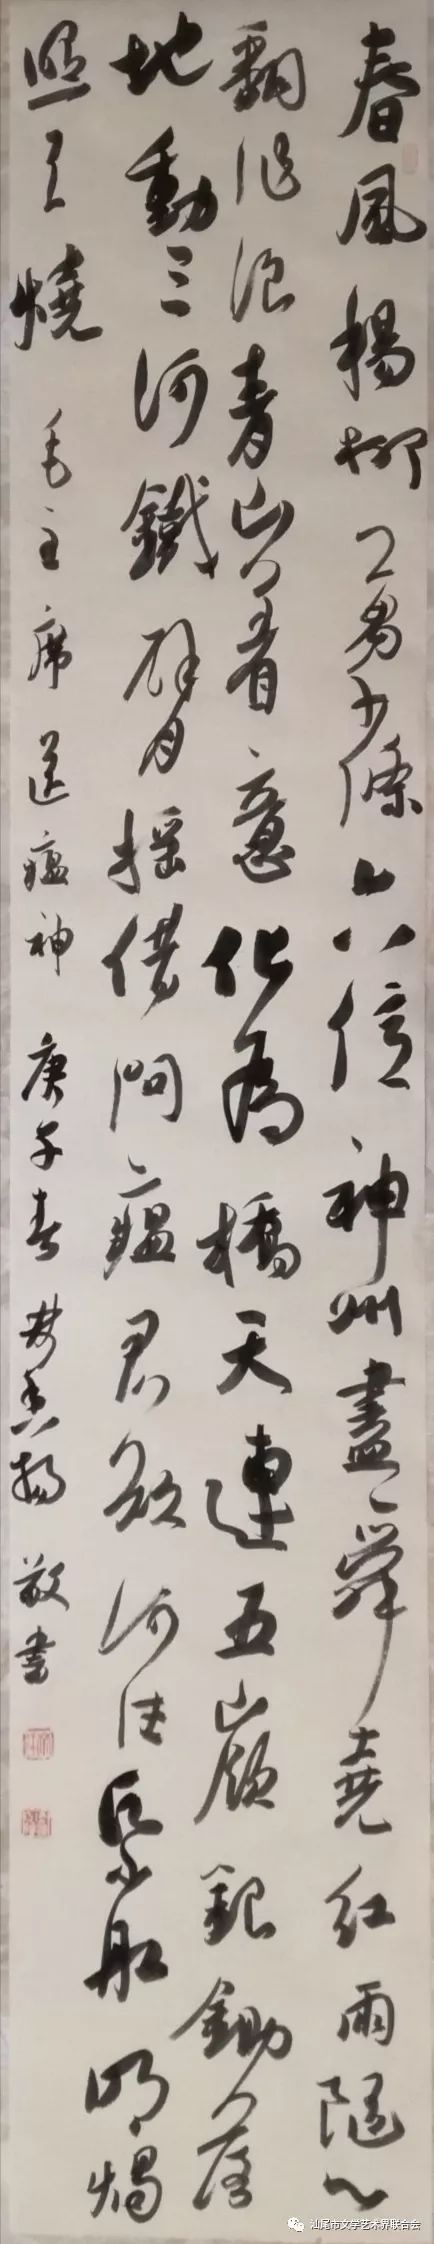 春風楊柳萬千條六億神州盡舜堯紅雨隨心
翻作浪青山着意化為橋天連五嶺銀鋤落
地動三河鐵臂搖借問瘟君欲何往紙船明燭
照天燒 毛主席送瘟神 庚子春 敬書
汕尾市文学艺术界联合会